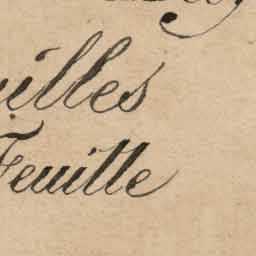 illes
Feuille